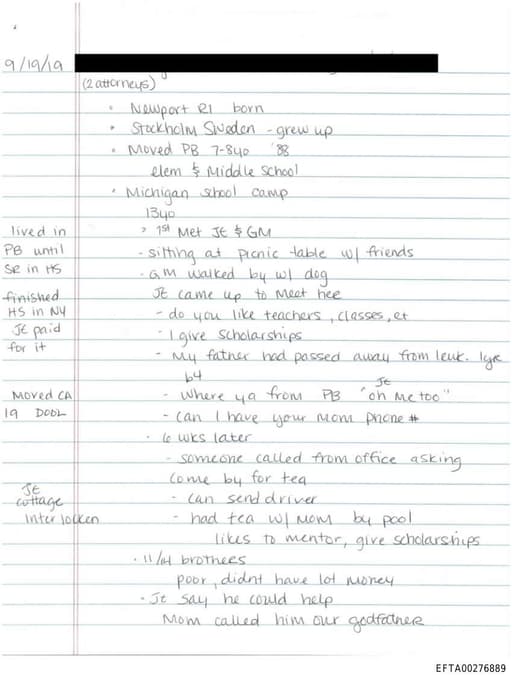 9/19/19
(2 attorneys)
• Newport RI born
• Stockholm Sweden - grew up
• Moved PB 7-8yo '88
elem & Middle School
• Michigan school camp
13yo
> 1st Met JE & GM
lived in
PB until
SR in HS
- sitting at picnic table w/ friends
- GM walked by w/ dog
JE came up to Meet hee
finished
HS in NY
JE paid
for it
- do you like teachers, classes, et
- I give scholarships
- My father had passed away from leuk. 1yr
b4
Moved CA
19
- where ya from PB JE "oh me too"
- can I have your Mom phone #
• 6 wks later
- someone called from office asking
come by for tea
- can send driver
JE
cottage
Interlocken
- had tea w/ Mom by pool
likes to mentor, give scholarships
• brothees
poor, didnt have lot money
• JE say he could help
Mom called him our godfathee
EFTA00276889